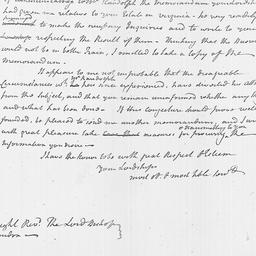 Randolph the Memorandum your Lordship
had given me relative to your Estate in Virginia. he very readily
to make the necessary Inquiries and to write to your
Lordship respecting the Result of them. Thinking that the Business
would not be in better Train, I omitted to take a Copy of the
Memorandum.
It appears to me not improbable that the disagreable
Circumstances wch. Mr. Randolph has since experienced, have diverted his atten
from this subject, and that you remain uninformed whether any thing
and what has been done. If this conjecture should prove well
founded, be pleased to send me another memorandum, and I will
with great pleasure take measures for procuring & transmitting to you the
Information you desire
I have the honor to be with great Respect & Esteem
Your Lordships
most obt. & most hble Servt.
Right Revd. The Lord Bishop
London